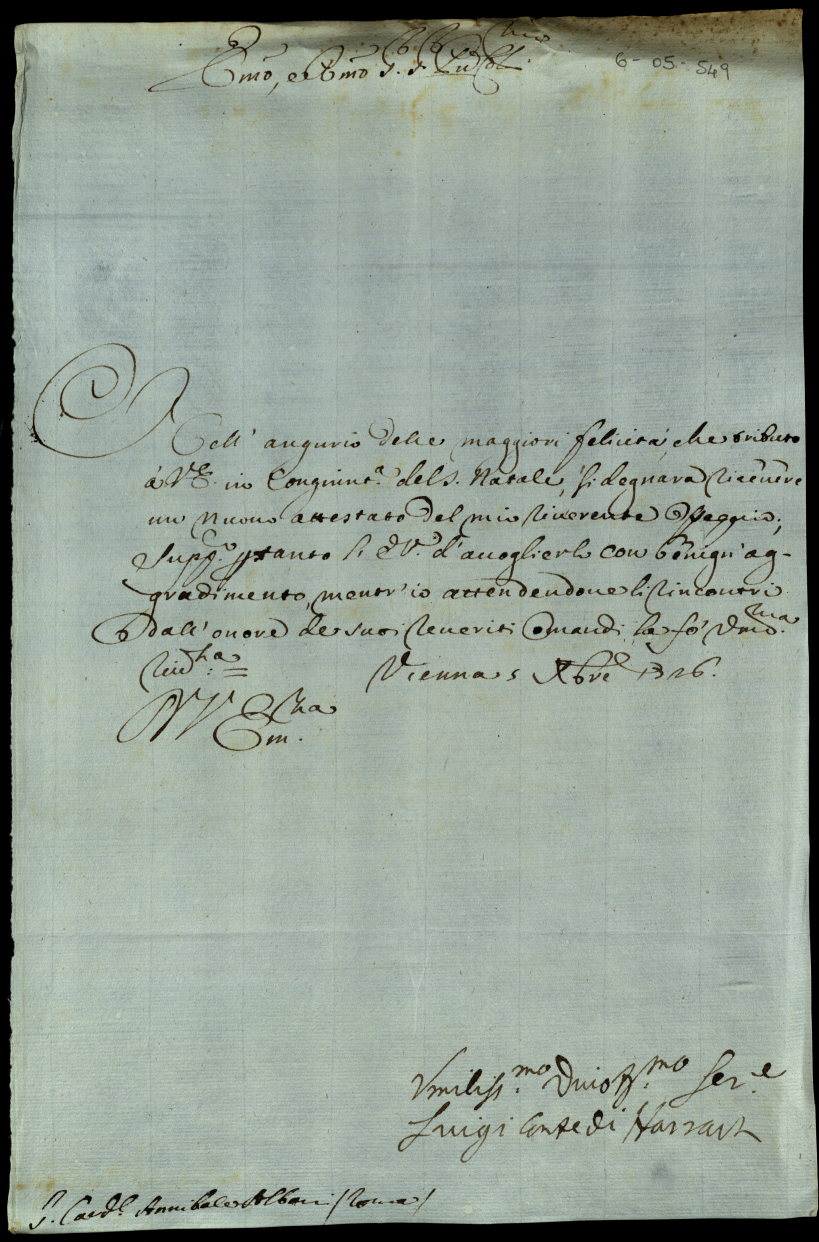 Emo, e Rmo S. S. Pñe Col.mo
6-05-549
Nell' augurio delle maggiori felicità, che tributo
à V.E. in Congiunt.a del S. Natale, si degnarà ricevere
un nuovo attestato del mio riverente Ossequio;
Supp.co ptanto l'E.V. d'accoglierlo con benign' ag-
gradimento, mentr' io attendendone li rincontri
dall' onore de suoi reveriti Comandi, la fò
river.za = Vienna 5 Xbre 1726.
Di V. Em.za
Vmiliss.mo Divotiss.mo Ser.e
Luigi Conte di Harrach
S. Card.l Annibale Albani /Roma/